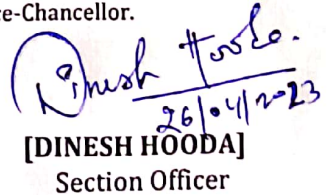 ce-Chancellor.
Dinesh Hooda.
26/04/2023
[DINESH HOODA]
Section Officer